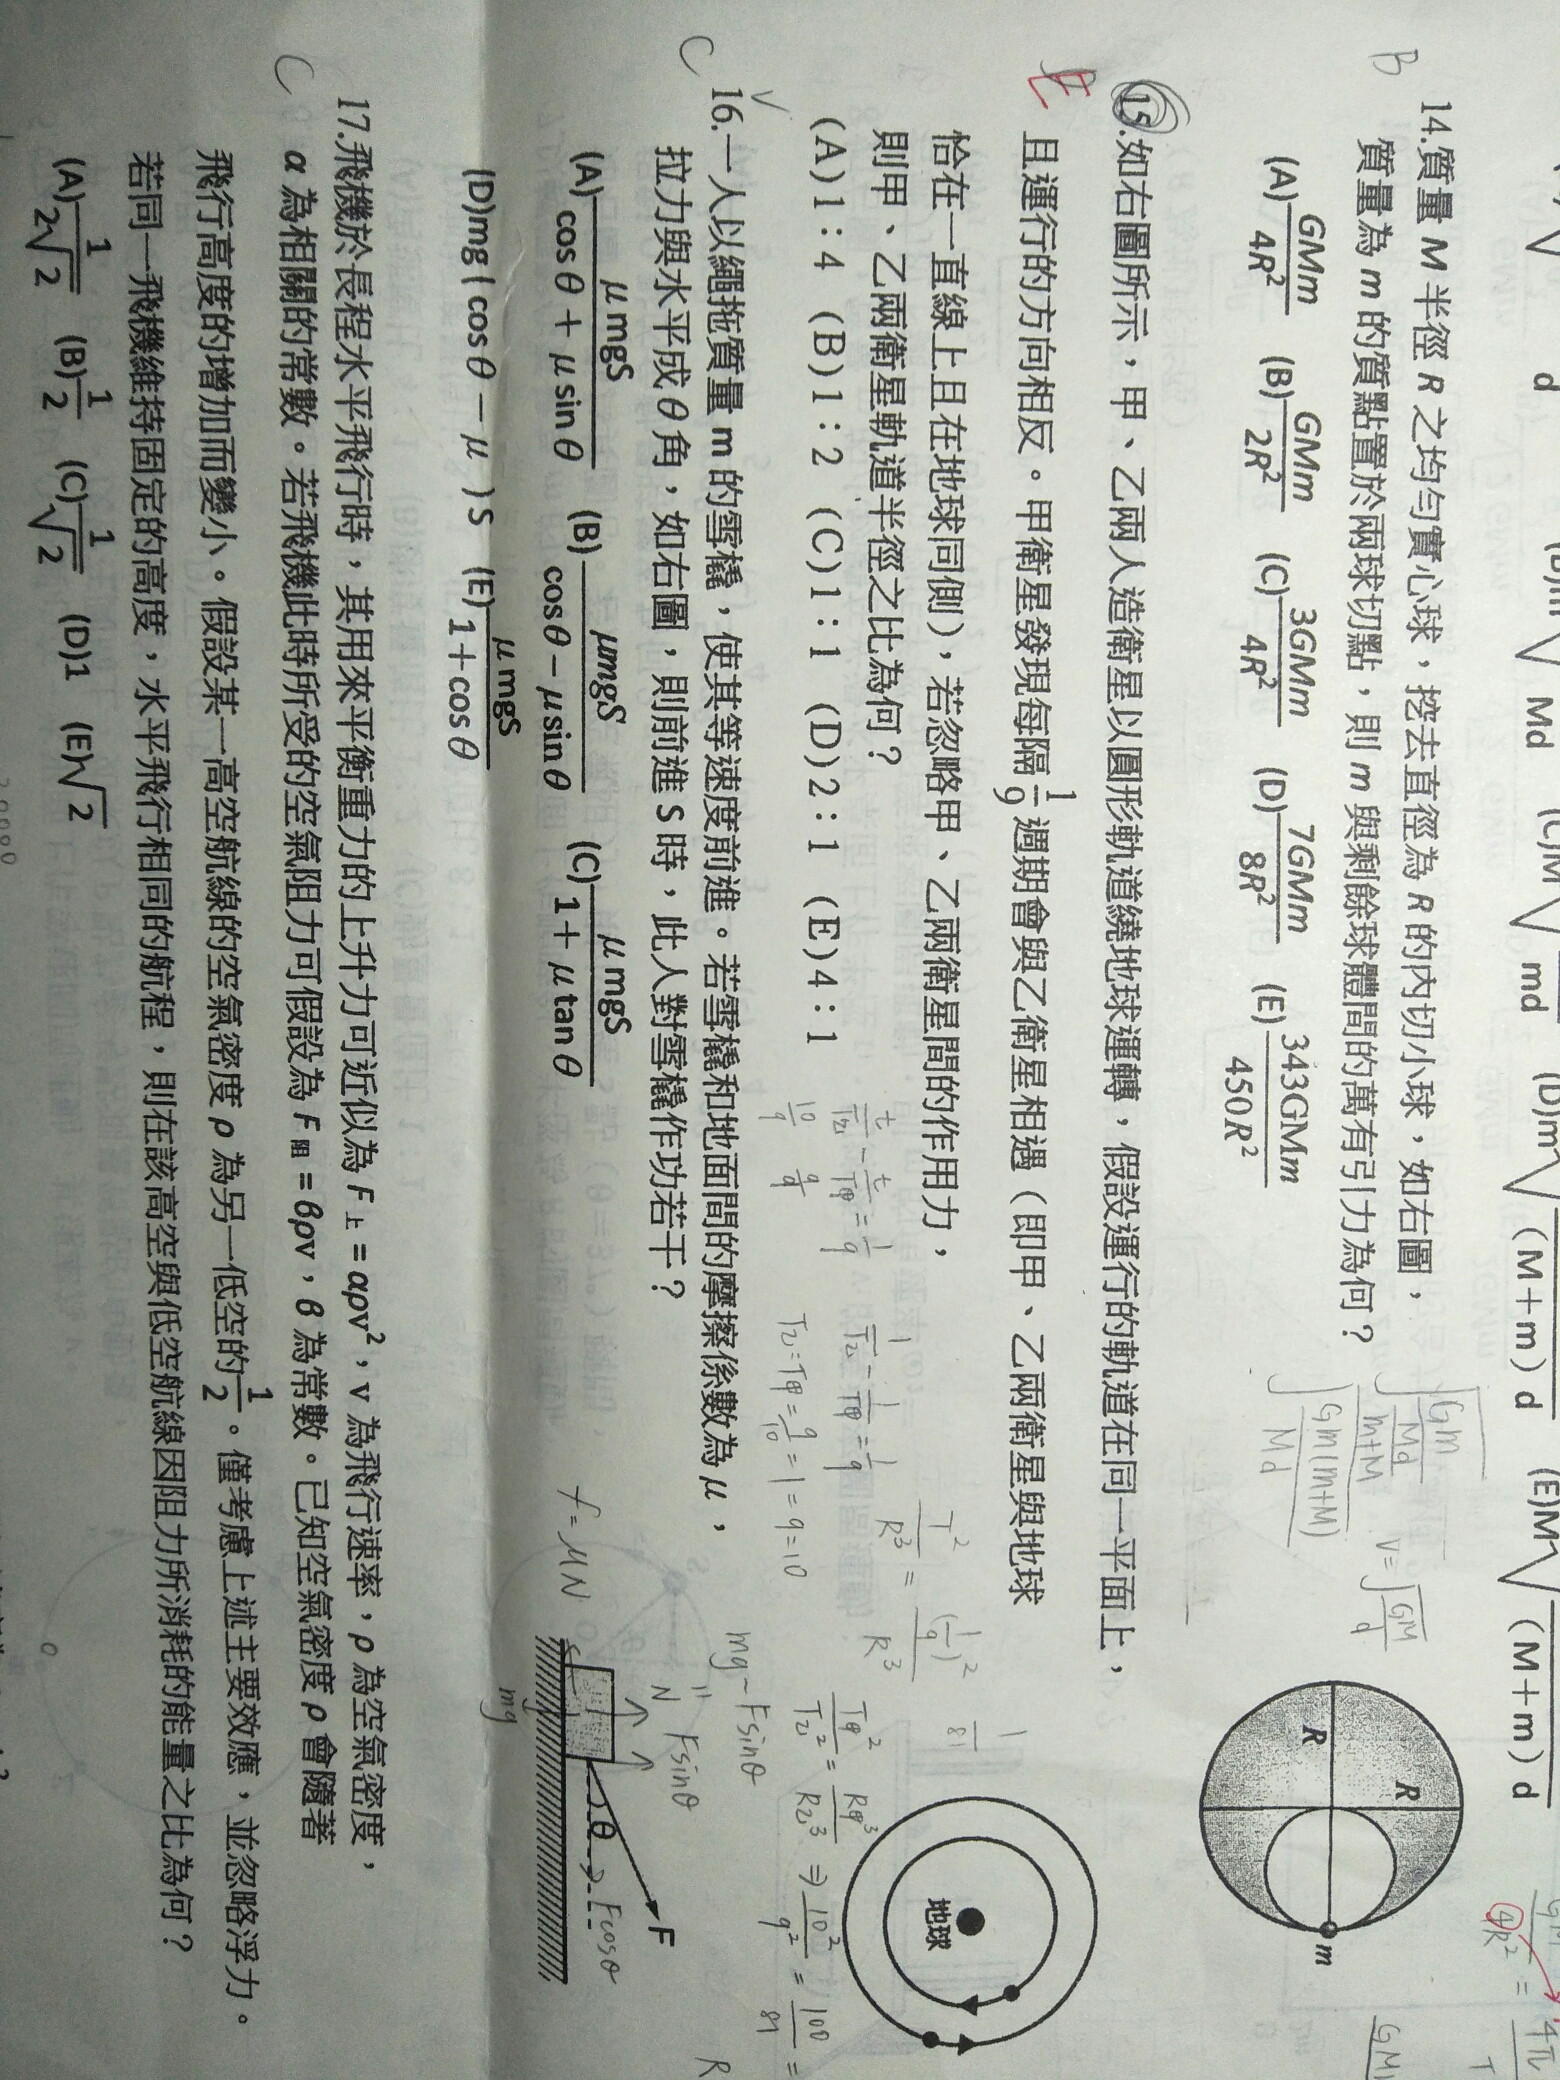 (D)m√ (M+m)d
(E)M√ (M+m)d
B
14.質量 M 半徑 R 之均勻實心球，挖去直徑為 R 的內切小球，如右圖，
質量為 m 的質點置於兩球切點，則 m 與剩餘球體間的萬有引力為何？
(A) GMm/4R² (B) GMm/2R² (C) 3GMm/4R² (D) 7GMm/8R² (E) 343GMm/450R²
R
R
m
V=√GM/d
E
15.如右圖所示，甲、乙兩人造衛星以圓形軌道繞地球運轉，假設運行的軌道在同一平面上，
且運行的方向相反。甲衛星發現每隔 1/9 週期會與乙衛星相遇（即甲、乙兩衛星與地球
恰在一直線上且在地球同側），若忽略甲、乙兩衛星間的作用力，
則甲、乙兩衛星軌道半徑之比為何？
(A)1:4 (B)1:2 (C)1:1 (D)2:1 (E)4:1
地球
t/T乙 - t/T甲 = 1/9
1/T乙 - 1/T甲 = 1/9
T乙=T甲=9/10=1=9=10
T²/R³ = (1/9)²/R³
1/81
T甲²/T乙² = R甲³/R乙³ ⇒ 10²/9² = 100/81 =
C
16.一人以繩拖質量 m 的雪橇，使其等速度前進。若雪橇和地面間的摩擦係數為 μ，
拉力與水平成 θ 角，如右圖，則前進 S 時，此人對雪橇作功若干？
(A) μmgS/cosθ+μsinθ (B) μmgS/cosθ-μsinθ (C) μmgS/1+μtanθ
(D)mg(cosθ-μ)S (E) μmgS/1+cosθ
mg-Fsinθ
N
Fsinθ
f=μN
mg
θ
F
Fcosθ
C
17.飛機於長程水平飛行時，其用來平衡重力的上升力可近似為 F上=αρv²，v 為飛行速率，ρ 為空氣密度，
α 為相關的常數。若飛機此時所受的空氣阻力可假設為 F阻=βρv，β 為常數。已知空氣密度 ρ 會隨著
飛行高度的增加而變小。假設某一高空航線的空氣密度 ρ 為另一低空的 1/2。僅考慮上述主要效應，並忽略浮力。
若同一飛機維持固定的高度，水平飛行相同的航程，則在該高空與低空航線因阻力所消耗的能量之比為何？
(A) 1/2√2 (B) 1/2 (C) 1/√2 (D)1 (E)√2